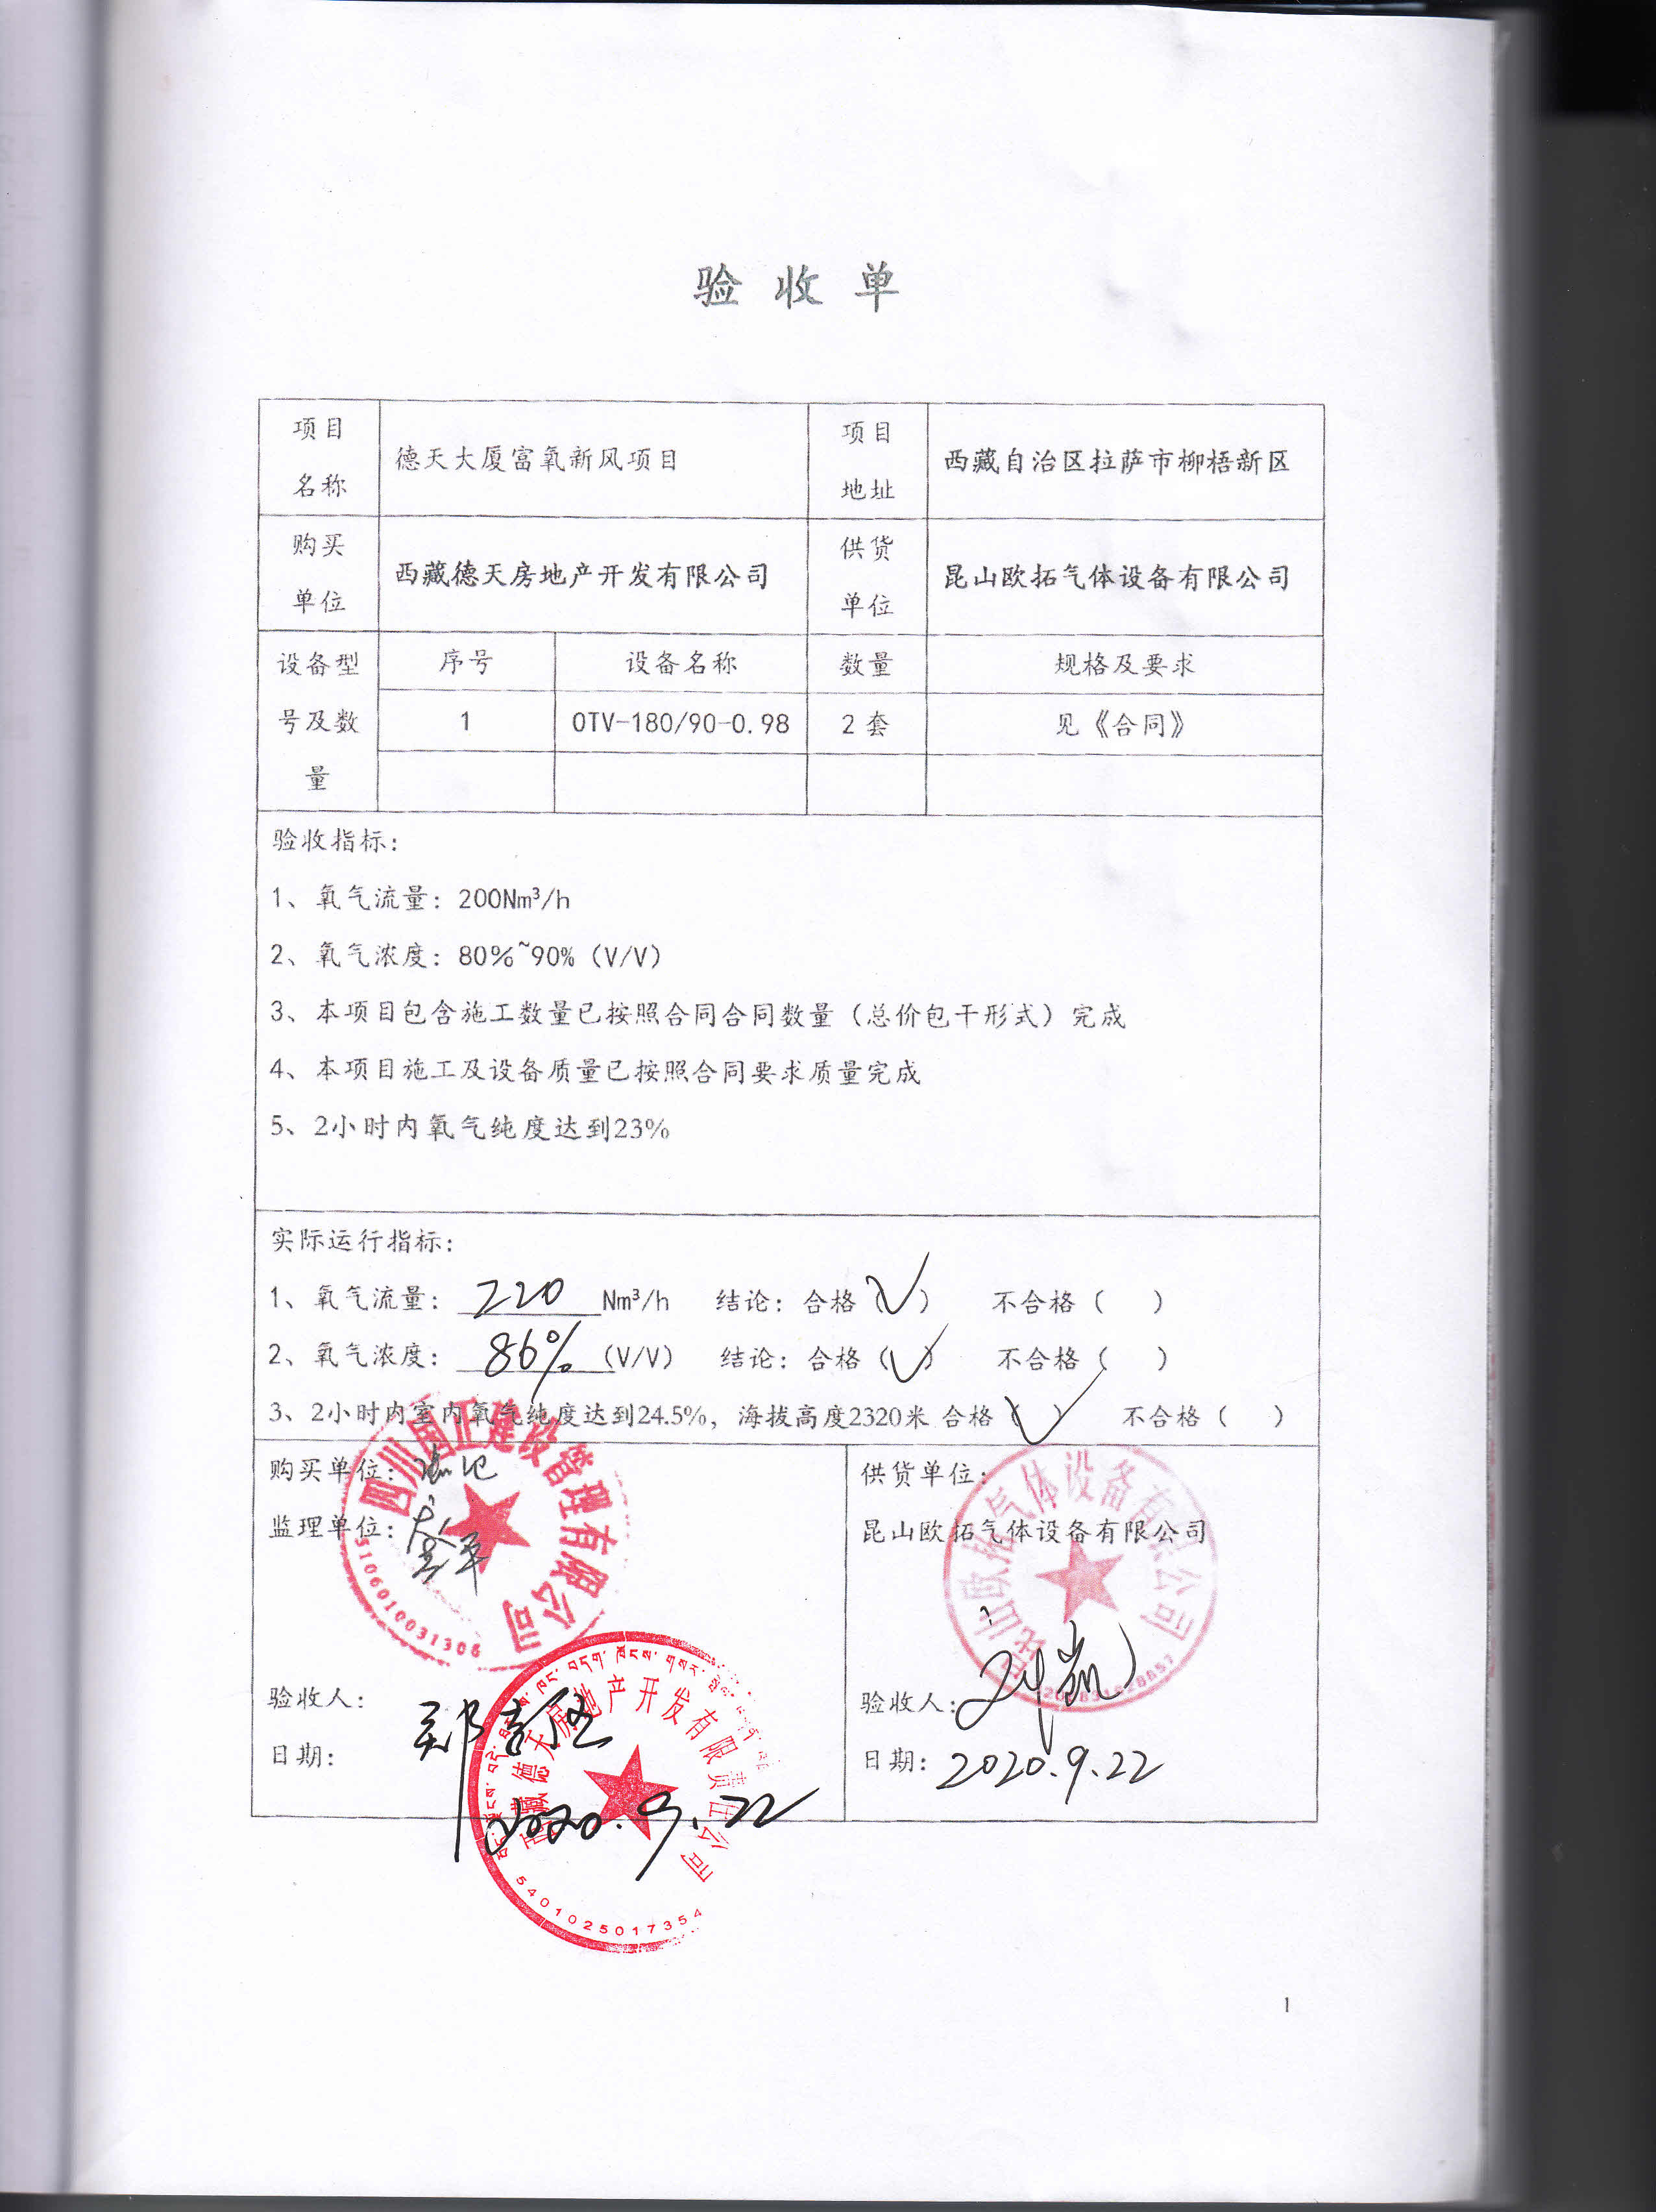 验收单
项目名称 德天大厦富氧新风项目 项目地址 西藏自治区拉萨市柳梧新区
购买单位 西藏德天房地产开发有限公司 供货单位 昆山欧拓气体设备有限公司
设备型号及数量 序号 设备名称 数量 规格及要求
1 OTV-180/90-0.98 2套 见《合同》
验收指标：
1、氧气流量：200Nm³/h
2、氧气浓度：80%~90%（V/V）
3、本项目包含施工数量已按照合同合同数量（总价包干形式）完成
4、本项目施工及设备质量已按照合同要求质量完成
5、2小时内氧气纯度达到23%
实际运行指标：
1、氧气流量：220Nm³/h 结论：合格（√） 不合格（ ）
2、氧气浓度：86%（V/V） 结论：合格（√） 不合格（ ）
3、2小时内室内氧气纯度达到24.5%，海拔高度2320米 合格（√） 不合格（ ）
购买单位：
监理单位：
四川国正建设管理有限公司
5106010031306
验收人：
日期：2020.9.22
西藏德天房地产开发有限责任公司
5401025017354
供货单位：
昆山欧拓气体设备有限公司
昆山欧拓气体设备有限公司
验收人：刘凯
日期：2020.9.22
1